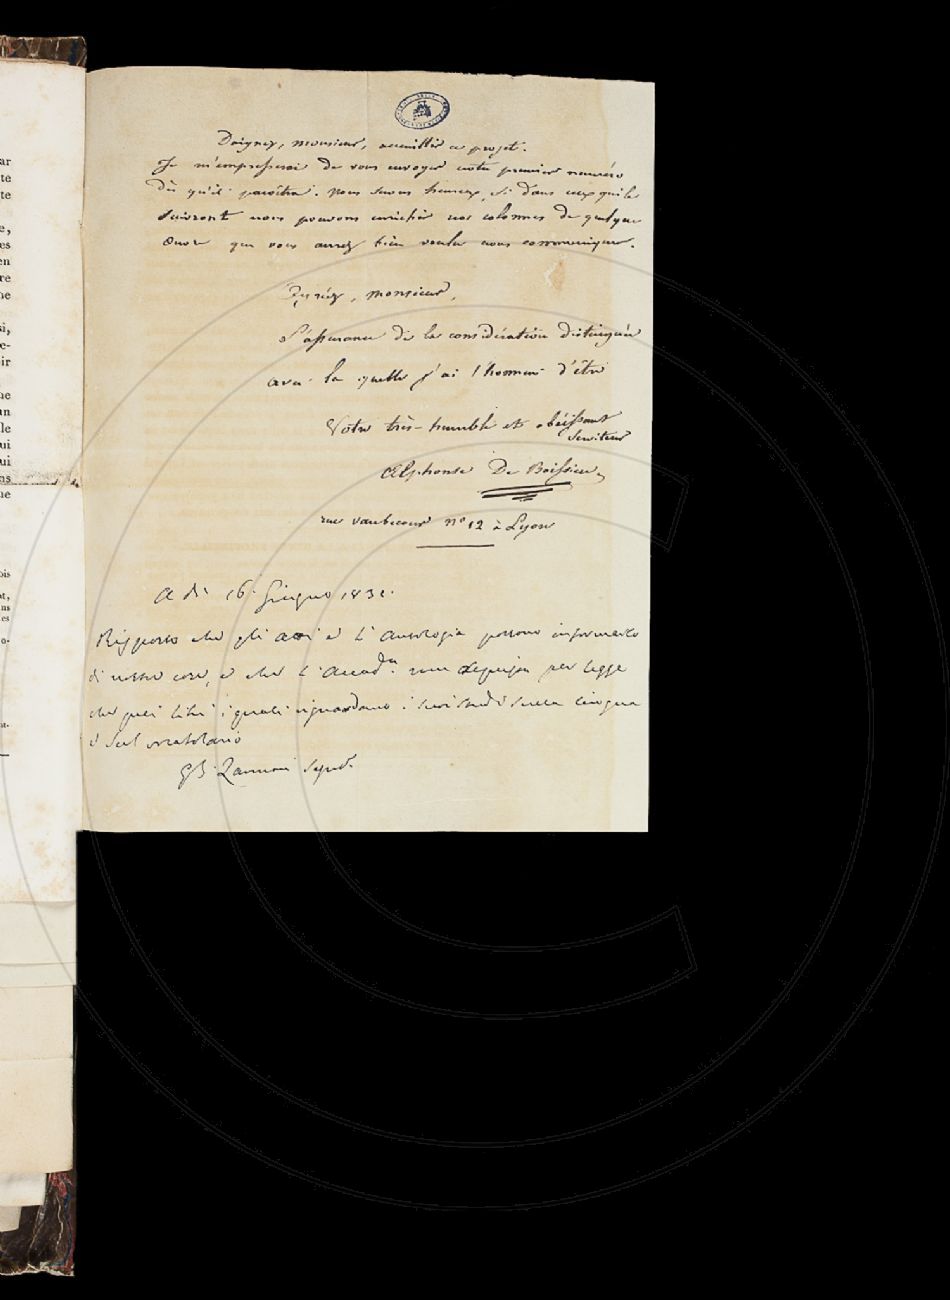 Daignez, monsieur, accueillir ce projet.
Je m'empresserai de vous envoyer notre premier numéro
dès qu'il paroîtra. nous serons heureux, si dans ceux qui le
suivront nous pouvons enrichir nos colonnes de quelque
œuvre que vous aurez bien voulu nous communiquer.
agréez, monsieur,
l'assurance de la considération distinguée
avec la quelle j'ai l'honneur d'être
Votre très-humble et obéissant
serviteur
Alphonse De Boissieu
rue vaubecour n° 12 à Lyon
A dì 16 Giugno 183
Risposto che gli atti e l'Antologia possono informarlo
di nostre cose, e che l'Accad.ia non acquista per legge
che quei libri i quali riguardano i suoi studi sulla lingua
e sul vocabolario
GB Zannoni Segret.